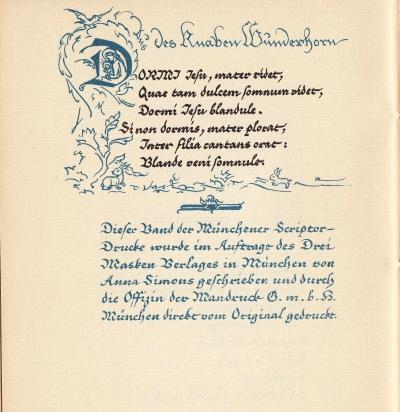 Aus des Knaben Wunderhorn
DORMI Jesu, mater ridet,
Quae tam dulcem somnum videt,
Dormi Jesu blandule.
Si non dormis, mater plorat,
Inter filia cantans orat:
Blande veni somnule.
Dieser Band der Münchener Scriptor-
Drucke wurde im Auftrage des Drei
Masken Verlages in München von
Anna Simons geschrieben und durch
die Offizin der Mandruck G. m. b. H.
München direkt vom Original gedruckt.